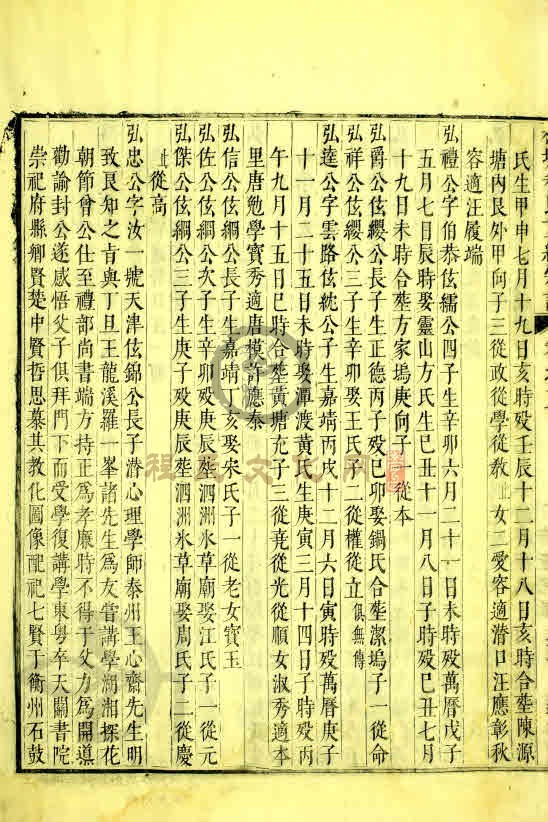 氏生甲申七月十九日亥時歿壬辰十二月十八日亥時合塟陳源
塘內艮外甲向子三從政從學從教 女二愛容適潛口汪應彰秋
容適汪履端
弘禮公字伯恭伭繻公四子生辛卯六月二十一日未時歿萬曆戊子
五月七日辰時娶靈山方氏生己丑十一月八日子時歿己丑七月
十九日未時合塟方家塢庚向子一從本
弘爵公伭纓公長子生正德丙子歿己卯娶鍋氏合塟潔塢子一從命
弘祥公伭纓公三子生辛卯娶王氏子二從權從立俱無傳
弘達公字雲路伭統公子生嘉靖丙戌十二月六日寅時歿萬曆庚子
十一月二十五日未時娶潭渡黃氏生庚寅三月十四日子時歿丙
午九月十五日巳時合塟黃塘充子三從堯從光從順女淑秀適本
里唐勉學寶秀適唐模許應泰
弘信公伭綱公長子生嘉靖丁亥娶宋氏子一從老女寶玉
弘佐公伭綱公次子生辛卯歿庚辰塟泗洲氷草廟娶江氏子一從元
弘傑公伭綱公三子生庚子歿庚辰塟泗洲氷草廟娶周氏子二從慶
從高
弘忠公字汝一號天津伭錦公長子潛心理學師泰州王心齋先生明
致良知之旨與丁旦王龍溪羅一峯諸先生爲友嘗講學湖湘探花
朝節曾公仕至禮部尚書端方持正爲孝廉時不得于父力爲開導
勸諭封公遂感悟父子俱拜門下而受學復講學東粵卒天關書院
崇祀府縣鄉賢楚中賢哲思慕其教化圖像配祀七賢于衡州石鼓